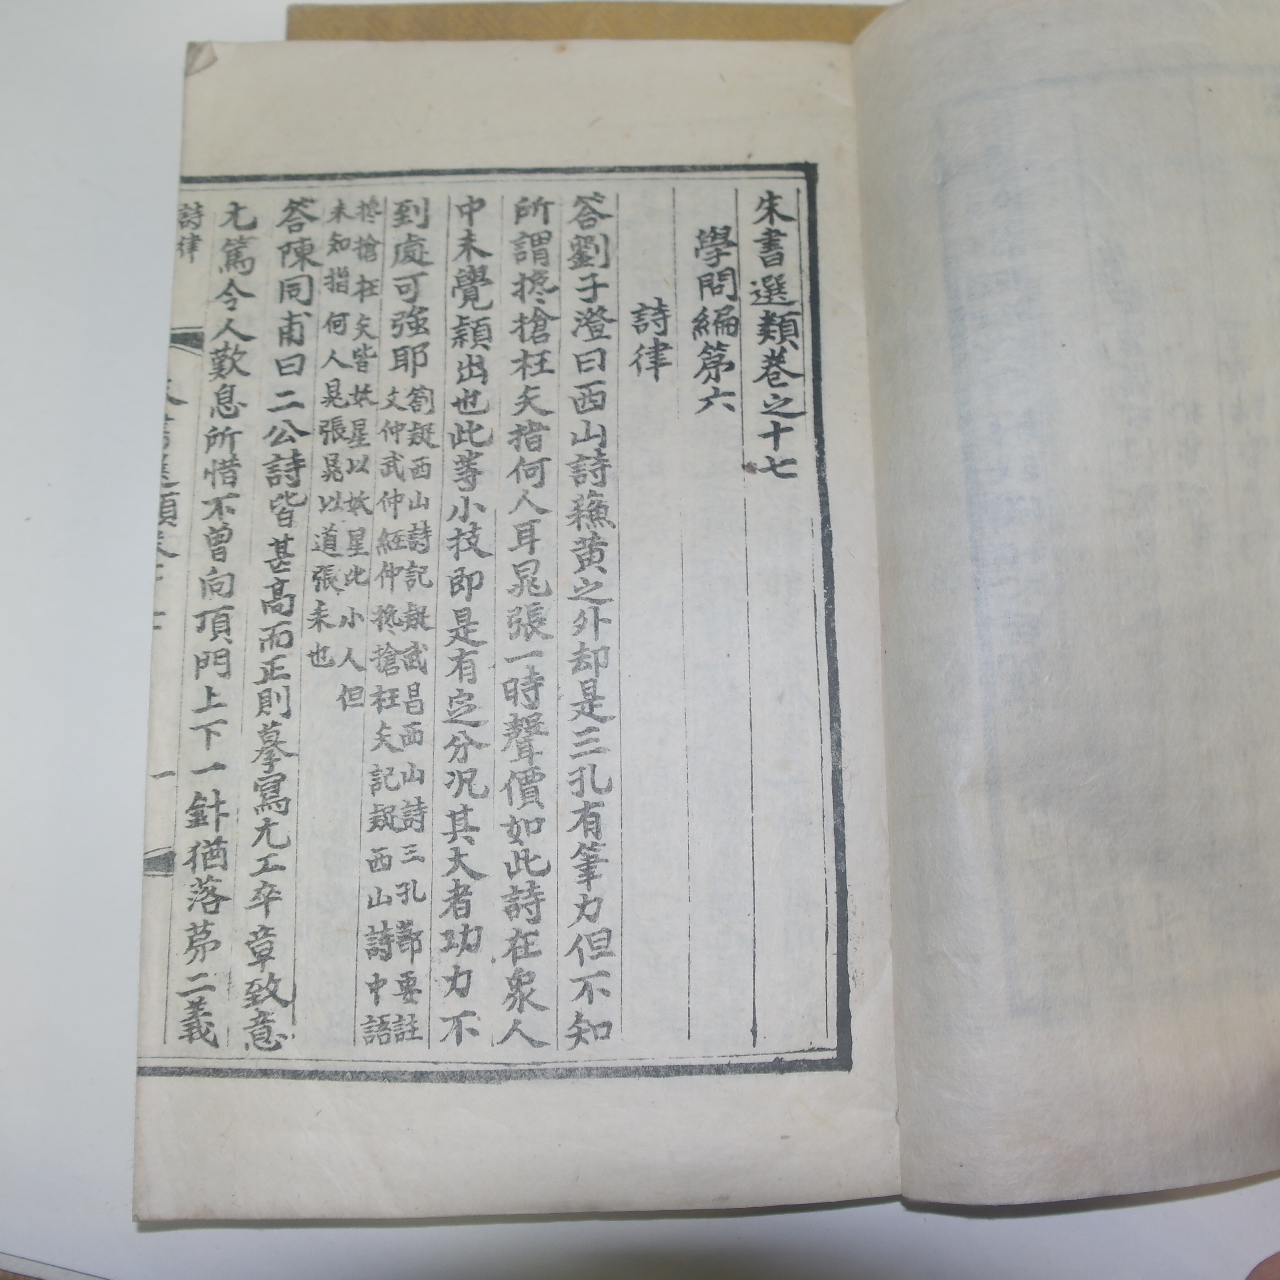 朱書選類卷之十七
學問編第六
詩律
答劉子澄曰西山詩蘓黄之外却是三孔有筆力但不知
所謂攙搶枉矢指何人耳晁張一時聲價如此詩在衆人
中未覺穎出也此等小技即是有定分况其大者功力不
到處可強耶
劄疑西山詩記疑武昌西山詩三孔鄒要註
文仲武仲經仲攙搶枉矢記疑西山詩中語
攙搶枉矢皆妖星以妖星比小人但
未知指何人晁張晁以道張耒也
答陳同甫曰二公詩皆甚高而正則摹寫尤工卒章致意
尤篤令人歎息所惜不曾向頂門上下一針猶落第二義
詩律
朱書選類卷十七
一